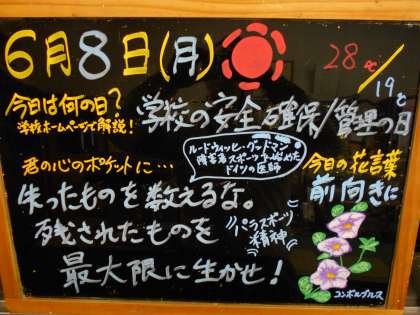 6月8日(月)
28℃/19℃
今日は何の日?
学校ホームページで解説!
学校の安全確保/管理の日
君の心のポケットに…
ルードウィッヒ・グッドマン
障害者スポーツを始めた
ドイツの医師
今日の花言葉
前向きに
失ったものを数えるな。
残されたものを
最大限に生かせ!
パラスポーツ
精神
コンボルブルス